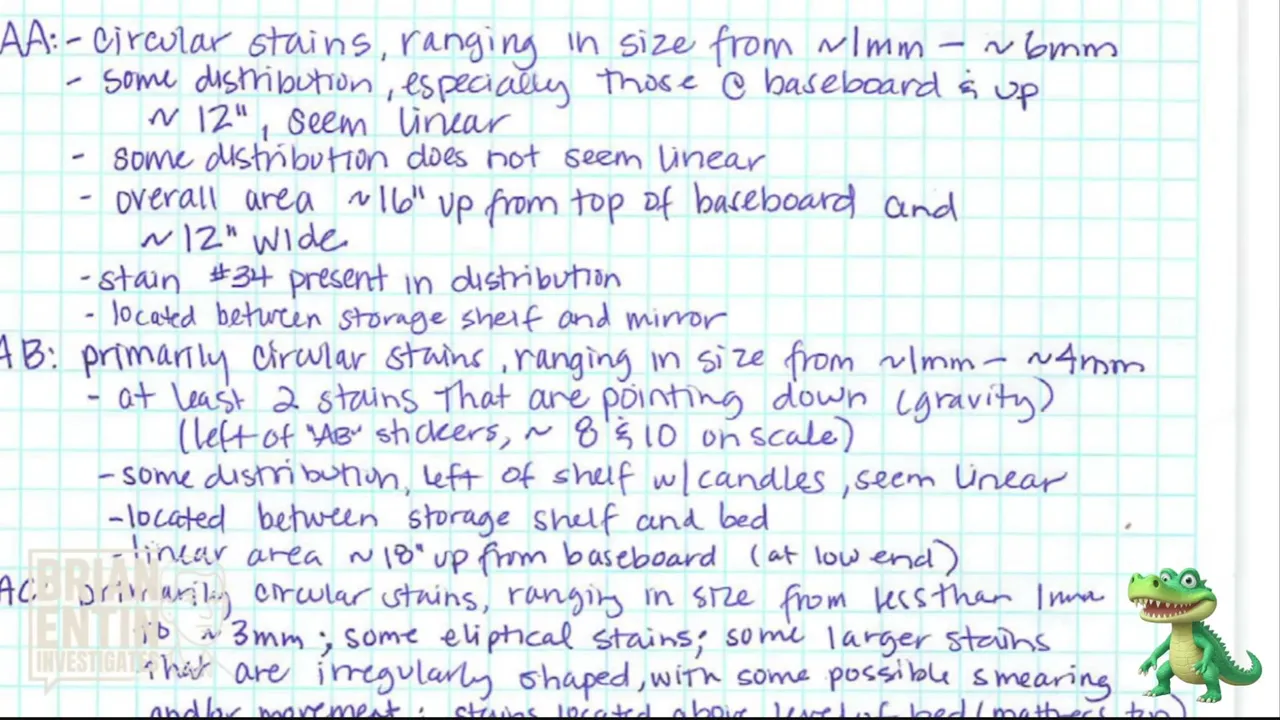 AA: - circular stains, ranging in size from ~1mm - ~6mm
- some distribution, especially those @ baseboard & up
~ 12", seem linear
- some distribution does not seem linear
- overall area ~16" up from top of baseboard and
~12" wide
- stain #34 present in distribution
- located between storage shelf and mirror
AB: primarily circular stains, ranging in size from ~1mm - ~4mm
- at least 2 stains that are pointing down (gravity)
(left of "AB" stickers, ~ 8 & 10 on scale)
- some distribution, left of shelf w/ candles, seem linear
- located between storage shelf and bed
- linear area ~18" up from baseboard (at low end)
AC: primarily circular stains, ranging in size from less than 1mm
to ~3mm; some eliptical stains; some larger stains
that are irregularly shaped, with some possible smearing
and/or movement; stains located above level of bed (mattress top)
BRIAN
ENTIN
INVESTIGATES